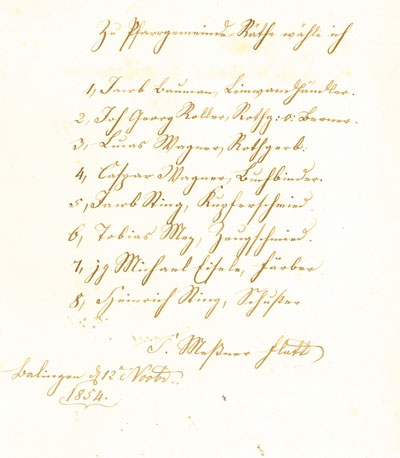 Zu Pfarrgemeinde Räthe wähle ich
1, Jacob Bauman, Leinwandhändler.
2, Joh Georg Koller, Rothg: v: Berner.
3, Lucas Wagner, Rothgerb.
4, Caspar Wagner, Buchbinder.
5, Jacob Ring, Kupferschmied.
6, Tobias Mez, Zeugschmied.
7, jg Michael Eisele, Färber
8, Heinrich Ring, Schuster
T. Meßner Flatt
Balingen d 12 Novbr.
1854.